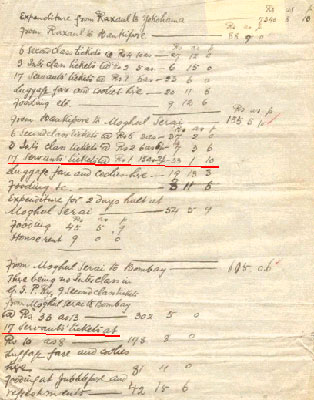 Rs as p
Expenditure from Raxaul to Yokohama 7340 8 10
From Raxaul to Bankipore 88 9 0
Rs as p
6 second class tickets @ Rs
3 Inter class tickets @ Rs 2 5 as 6 15 0
17 servants tickets @ Rs 1
luggage fare and coolies hire 20 11 5
fooding etc 9 12 6
Rs as p
From Bankipore to Moghul Serai 135 5
6 second class tickets @ Rs 5
3 Inter class tickets @ Rs 2
17 servants tickets @ Rs 1 13 1 10
luggage fare and coolies hire 19 13 3
Fooding &c. 3 11 5
Expenditure for 2 days halt at
Moghul Serai 54 5 9
Rs as p
Fooding 45 5 9
House rent 9 0 0
From Moghul Serai to Bombay
There being no Inter Class in
G. I. P. Ry, 9 second class tickets
from Moghul Serai to Bombay
@ Rs 33 as 13 302 5 0
17 servants tickets at
Rs 10 as 8 178 2 0
luggage fare and coolies
hire 81 11 0
fooding at Jubbulpore and
refreshments 42 15 6